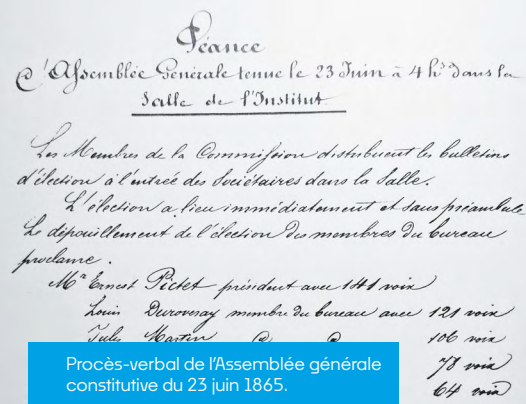 Séance
d'Assemblée Générale tenue le 23 Juin à 4 hs dans la
Salle de l'Institut
Les Membres de la Commission distribuent les bulletins
d'élection à l'entrée des Sociétaires dans la Salle.
L'élection a lieu immédiatement et sans préambule
Le dépouillement de l'élection des membres du bureau
proclame.
Mr Ernest Pictet président avec 141 voix
Louis Duroveray membre du bureau avec 121 voix
Jules Martin 106 voix
78 voix
64 voix
Procès-verbal de l'Assemblée générale
constitutive du 23 juin 1865.